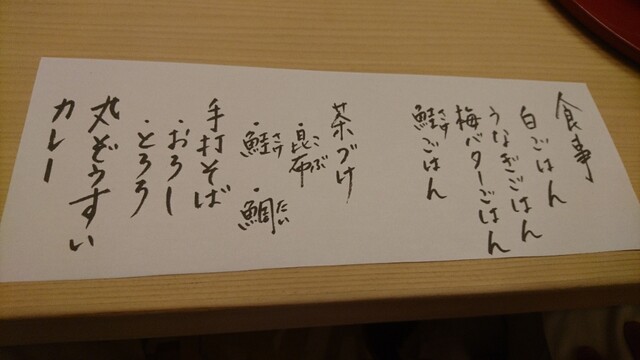 食事
白ごはん
うなぎごはん
梅バターごはん
鮭ごはん
さけ
茶づけ
・昆布
こぶ
・鮭
さけ
・鯛
たい
手打そば
・おろし
・とろろ
丸ぞうすい
カレー